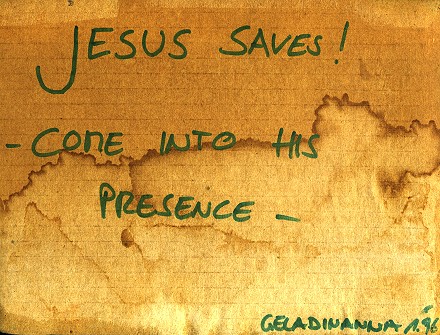 JESUS SAVES!
- COME INTO HIS
PRESENCE -
GELADINANNA